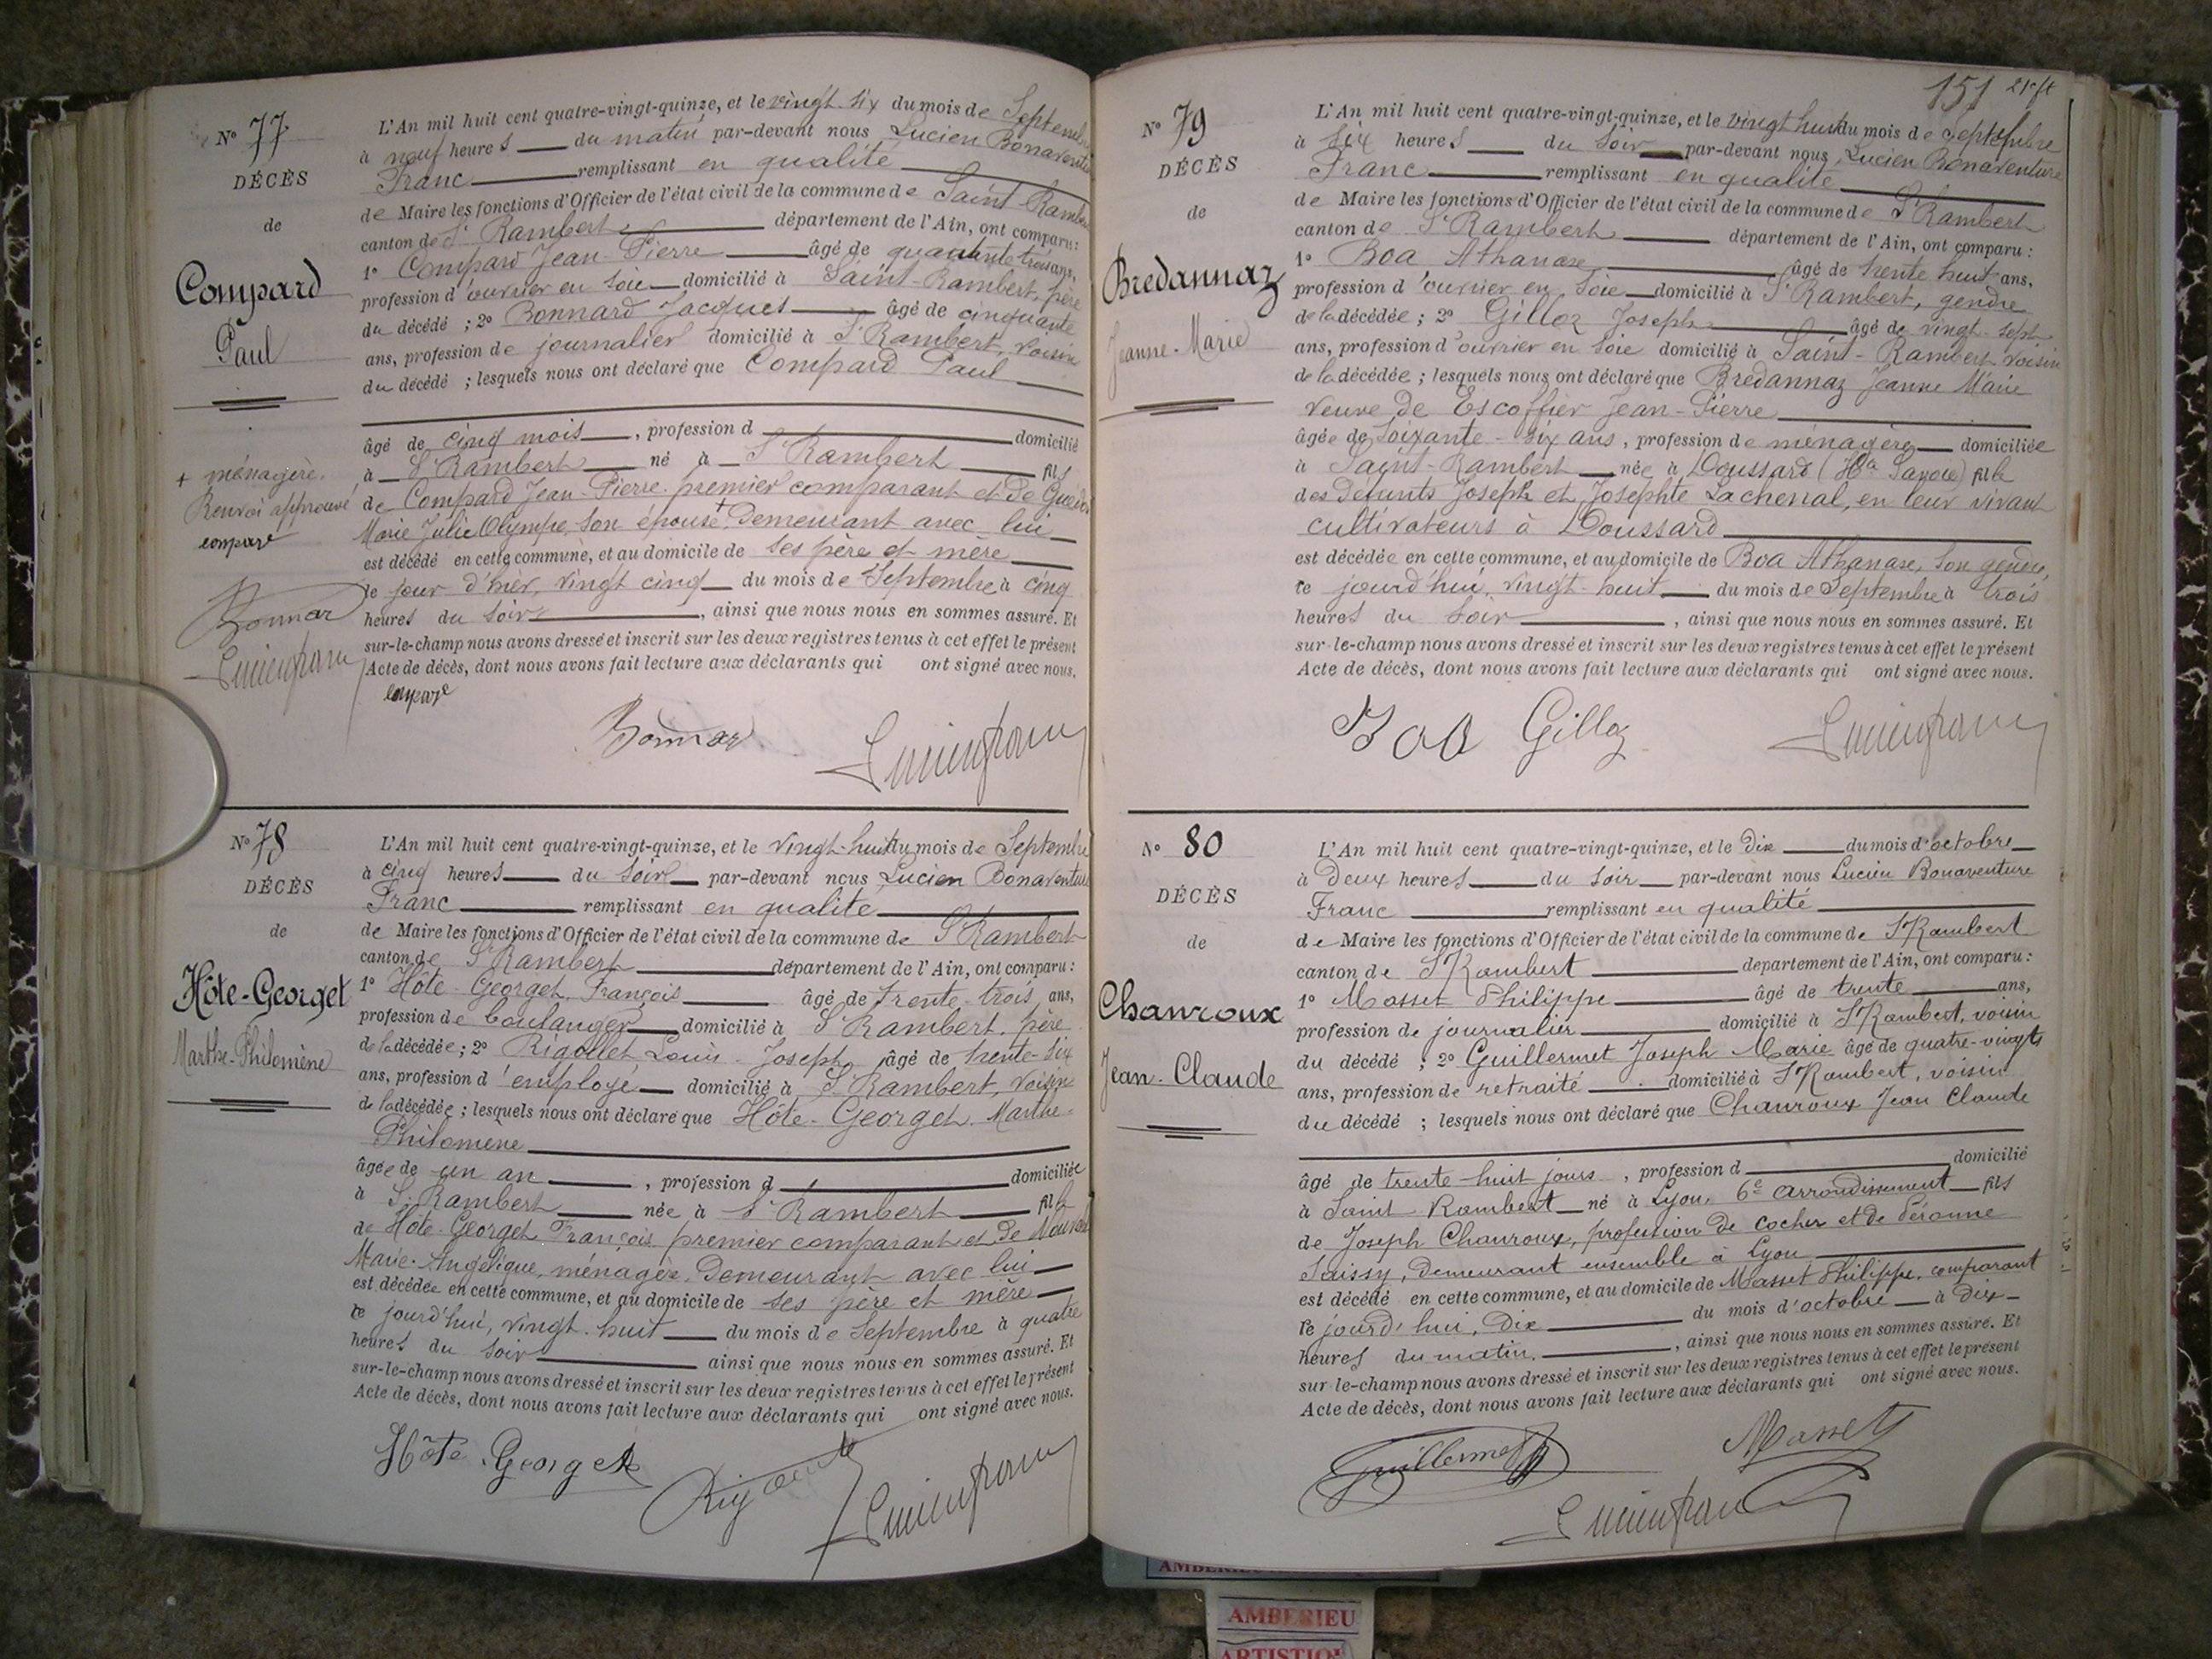 N° 77
DÉCÈS
de
Compard
Paul
+ ménagère.
Renvoi approuvé
compare
Bonnar
Lucien franc
L'An mil huit cent quatre-vingt-quinze, et le vingt-six du mois de Septembre
à neuf heures du matin par-devant nous Lucien Bonaventure
Franc remplissant en qualité
de Maire les fonctions d'Officier de l'état civil de la commune de Saint-Rambert
canton de St Rambert département de l'Ain, ont comparu:
1° Compard Jean-Pierre âgé de quarante trois ans,
profession d'ouvrier en soie domicilié à Saint-Rambert, père
du décédé ; 2° Bonnard Jacques âgé de cinquante
ans, profession de journalier domicilié à St Rambert, voisin
du décédé ; lesquels nous ont déclaré que Compard Paul
âgé de cinq mois, profession d domicilié
à St Rambert né à St Rambert fils
de Compard Jean-Pierre premier comparant et de
Marie Julie Olympe, son épouse + demeurant avec lui
est décédé en cette commune, et au domicile de ses père et mère
le jour d'hier, vingt cinq du mois de Septembre à cinq
heures du soir, ainsi que nous nous en sommes assuré. Et
sur-le-champ nous avons dressé et inscrit sur les deux registres tenus à cet effet le présent
Acte de décès, dont nous avons fait lecture aux déclarants qui ont signé avec nous.
compare
Bonnar
Lucien franc
N° 78
DÉCÈS
de
Hôte-Georget
Marthe-Philomène
L'An mil huit cent quatre-vingt-quinze, et le vingt-huit du mois de Septembre
à cinq heures du soir par-devant nous Lucien Bonaventure
Franc remplissant en qualité
de Maire les fonctions d'Officier de l'état civil de la commune de St Rambert
canton de St Rambert département de l'Ain, ont comparu :
1° Hôte-Georget François âgé de trente-trois ans,
profession de boulanger domicilié à St Rambert, père
de la décédée ; 2° Rigollet Louis-Joseph âgé de trente-six
ans, profession d'employé domicilié à St Rambert, voisin
de la décédée ; lesquels nous ont déclaré que Hôte-Georget Marthe-
Philomène
âgée de un an, profession d domiciliée
à St Rambert née à St Rambert fille
de Hôte-Georget François premier comparant et de
Marie-Angélique, ménagère, demeurant avec lui
est décédée en cette commune, et au domicile de ses père et mère
ce jourd'hui, vingt-huit du mois de Septembre à quatre
heures du soir ainsi que nous nous en sommes assuré. Et
sur-le-champ nous avons dressé et inscrit sur les deux registres tenus à cet effet le présent
Acte de décès, dont nous avons fait lecture aux déclarants qui ont signé avec nous.
Hôte-Georget
Lucien franc
151
N° 79
DÉCÈS
de
Bredannaz
Jeanne-Marie
L'An mil huit cent quatre-vingt-quinze, et le vingt huit du mois de Septembre
à six heures du soir par-devant nous Lucien Bonaventure
Franc remplissant en qualité
de Maire les fonctions d'Officier de l'état civil de la commune de St Rambert
canton de St Rambert département de l'Ain, ont comparu :
1° Boa Athanase âgé de trente huit ans,
profession d'ouvrier en soie domicilié à St Rambert, gendre
de la décédée ; 2° Gilloz Joseph âgé de vingt-sept
ans, profession d'ouvrier en soie domicilié à Saint-Rambert voisin
de la décédée ; lesquels nous ont déclaré que Bredannaz Jeanne Marie
veuve de Escoffier Jean-Pierre
âgée de soixante-six ans, profession de ménagère domiciliée
à Saint-Rambert née à Doussard (Hte Savoie) fille
des défunts Joseph et Josephte Lachenal, en leur vivant
cultivateurs à Doussard
est décédée en cette commune, et au domicile de Boa Athanase, son gendre,
ce jourd'hui, vingt-huit du mois de Septembre à trois
heures du soir, ainsi que nous nous en sommes assuré. Et
sur-le-champ nous avons dressé et inscrit sur les deux registres tenus à cet effet le présent
Acte de décès, dont nous avons fait lecture aux déclarants qui ont signé avec nous.
Boa Gilloz
Lucien franc
N° 80
DÉCÈS
de
Chauroux
Jean-Claude
L'An mil huit cent quatre-vingt-quinze, et le dix du mois d'octobre
à deux heures du soir par-devant nous Lucien Bonaventure
Franc remplissant en qualité
de Maire les fonctions d'Officier de l'état civil de la commune de St Rambert
canton de St Rambert département de l'Ain, ont comparu :
1° Masset Philippe âgé de trente ans,
profession de journalier domicilié à St Rambert, voisin
du décédé ; 2° Guillermet Joseph Marie âgé de quatre-vingts
ans, profession de retraité domicilié à St Rambert, voisin
du décédé ; lesquels nous ont déclaré que Chauroux Jean Claude
âgé de trente-huit jours, profession d domicilié
à Saint Rambert né à Lyon, 6e arrondissement fils
de Joseph Chauroux, profession de cocher et de Péronne
Saissy, demeurant ensemble à Lyon
est décédé en cette commune, et au domicile de Masset Philippe, comparant
ce jourd'hui, dix du mois d'octobre à dix
heures du matin, ainsi que nous nous en sommes assuré. Et
sur-le-champ nous avons dressé et inscrit sur les deux registres tenus à cet effet le présent
Acte de décès, dont nous avons fait lecture aux déclarants qui ont signé avec nous.
Guillermet
Masset
Lucien franc
AMBERIEU
ARTISTIQ